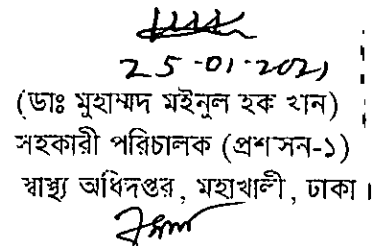 25-01-2021
(ডাঃ মুহাম্মদ মইনুল হক খান)
সহকারী পরিচালক (প্রশাসন-১)
স্বাস্থ্য অধিদপ্তর, মহাখালী, ঢাকা।